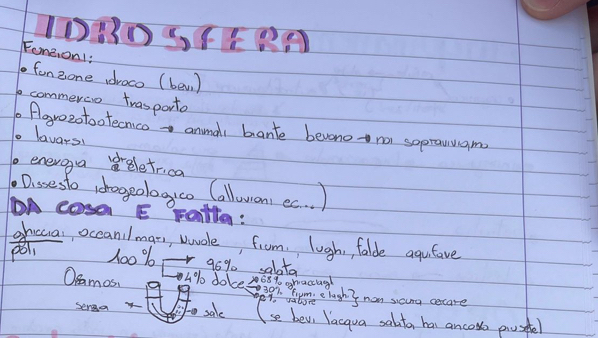 IDROSFERA
Funzioni:
• funzione idrico (bevi)
• commercio trasporto
• Agrozootecnico → animali piante bevono → noi sopraviviamo
• lavarsi
• energia idroeletrica
• Dissesto idrogeologico (alluvioni ec...)
DA COSA E FATTA:
ghiacciai, oceani/mari, Nuvole, fiumi, laghi, falde aquifave
poli
100% → 96% salata
→ 4% dolce → 68% ghiacciai
→ 30% fiumi e laghi } non sicura cercare
vapore
Osmosi
senza sale (se bevi l'acqua salata hai ancora piu sete)